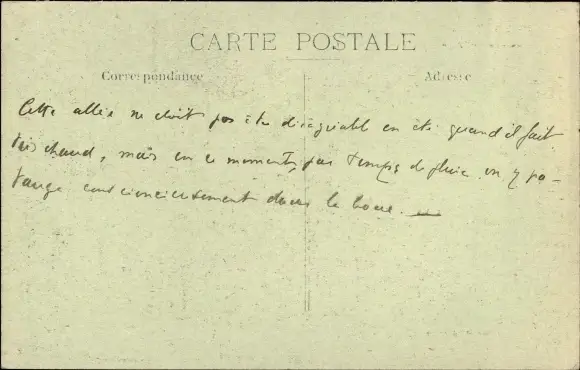 CARTE POSTALE
Correspondance
Adresse
Cette allée ne doit pas être désagréable en été quand il fait
très chaud, mais en ce moment, par temps de pluie on y pa-
tauge consciencieusement dans la boue.